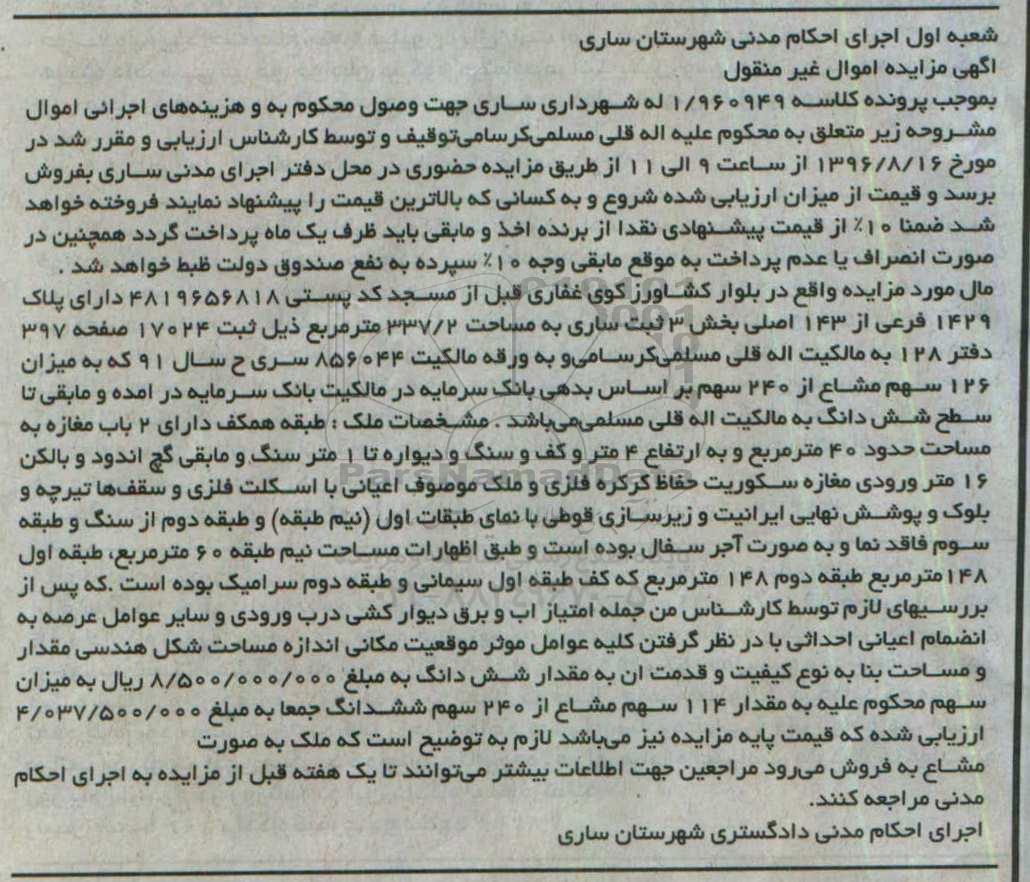 شعبه اول اجرای احکام مدنی شهرستان ساری
اگهی مزایده اموال غیر منقول
بموجب پرونده کلاسه ۱/۹۶۰۹۴۹ له شهرداری ساری جهت وصول محکوم به و هزینه‌های اجرائی اموال
مشروحه زیر متعلق به محکوم علیه اله قلی مسلمی‌کرسامی‌توقیف و توسط کارشناس ارزیابی و مقرر شد در
مورخ ۱۳۹۶/۸/۱۶ از ساعت ۹ الی ۱۱ از طریق مزایده حضوری در محل دفتر اجرای مدنی ساری بفروش
برسد و قیمت از میزان ارزیابی شده شروع و به کسانی که بالاترین قیمت را پیشنهاد نمایند فروخته خواهد
شد ضمنا ۱۰٪ از قیمت پیشنهادی نقدا از برنده اخذ و مابقی باید ظرف یک ماه پرداخت گردد همچنین در
صورت انصراف یا عدم پرداخت به موقع مابقی وجه ۱۰٪ سپرده به نفع صندوق دولت ظبط خواهد شد .
مال مورد مزایده واقع در بلوار کشاورز کوی غفاری قبل از مسجد کد پستی ۴۸۱۹۶۵۶۸۱۸ دارای پلاک
۱۴۲۹ فرعی از ۱۴۳ اصلی بخش ۳ ثبت ساری به مساحت ۳۳۷/۲ مترمربع ذیل ثبت ۱۷۰۲۴ صفحه ۳۹۷
دفتر ۱۲۸ به مالکیت اله قلی مسلمی‌کرسامی‌و به ورقه مالکیت ۸۵۶۰۴۴ سری ح سال ۹۱ که به میزان
۱۲۶ سهم مشاع از ۲۴۰ سهم بر اساس بدهی بانک سرمایه در مالکیت بانک سرمایه در امده و مابقی تا
سطح شش دانگ به مالکیت اله قلی مسلمی‌می‌باشد . مشخصات ملک : طبقه همکف دارای ۲ باب مغازه به
مساحت حدود ۴۰ مترمربع و به ارتفاع ۴ متر و کف و سنگ و دیواره تا ۱ متر سنگ و مابقی گچ اندود و بالکن
۱۶ متر ورودی مغازه سکوریت حفاظ کرکره فلزی و ملک موصوف اعیانی با اسکلت فلزی و سقف‌ها تیرچه و
بلوک و پوشش نهایی ایرانیت و زیرسازی قوطی با نمای طبقات اول (نیم طبقه) و طبقه دوم از سنگ و طبقه
سوم فاقد نما و به صورت آجر سفال بوده است و طبق اظهارات مساحت نیم طبقه ۶۰ مترمربع، طبقه اول
۱۴۸مترمربع طبقه دوم ۱۴۸ مترمربع که کف طبقه اول سیمانی و طبقه دوم سرامیک بوده است .که پس از
بررسیهای لازم توسط کارشناس من جمله امتیاز اب و برق دیوار کشی درب ورودی و سایر عوامل عرصه به
انضمام اعیانی احداثی با در نظر گرفتن کلیه عوامل موثر موقعیت مکانی اندازه مساحت شکل هندسی مقدار
و مساحت بنا به نوع کیفیت و قدمت ان به مقدار شش دانگ به مبلغ ۸/۵۰۰/۰۰۰/۰۰۰ ریال به میزان
سهم محکوم علیه به مقدار ۱۱۴ سهم مشاع از ۲۴۰ سهم ششدانگ جمعا به مبلغ ۴/۰۳۷/۵۰۰/۰۰۰
ارزیابی شده که قیمت پایه مزایده نیز می‌باشد لازم به توضیح است که ملک به صورت
مشاع به فروش می‌رود مراجعین جهت اطلاعات بیشتر می‌توانند تا یک هفته قبل از مزایده به اجرای احکام
مدنی مراجعه کنند.
اجرای احکام مدنی دادگستری شهرستان ساری
ParsNamadData